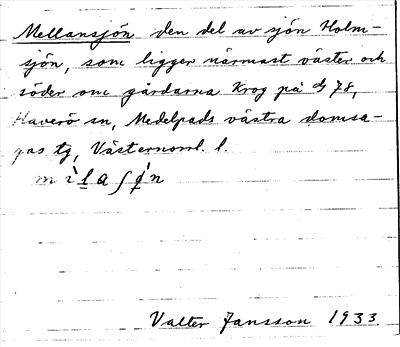 Mellansjön den del av sjön Holm-
sjön, som ligger närmast väster och
söder om gårdarna Krog på 78,
Haverö sn, Medelpads västra domsa-
gas tg, Västernorrl. l.
Valter Jansson 1933